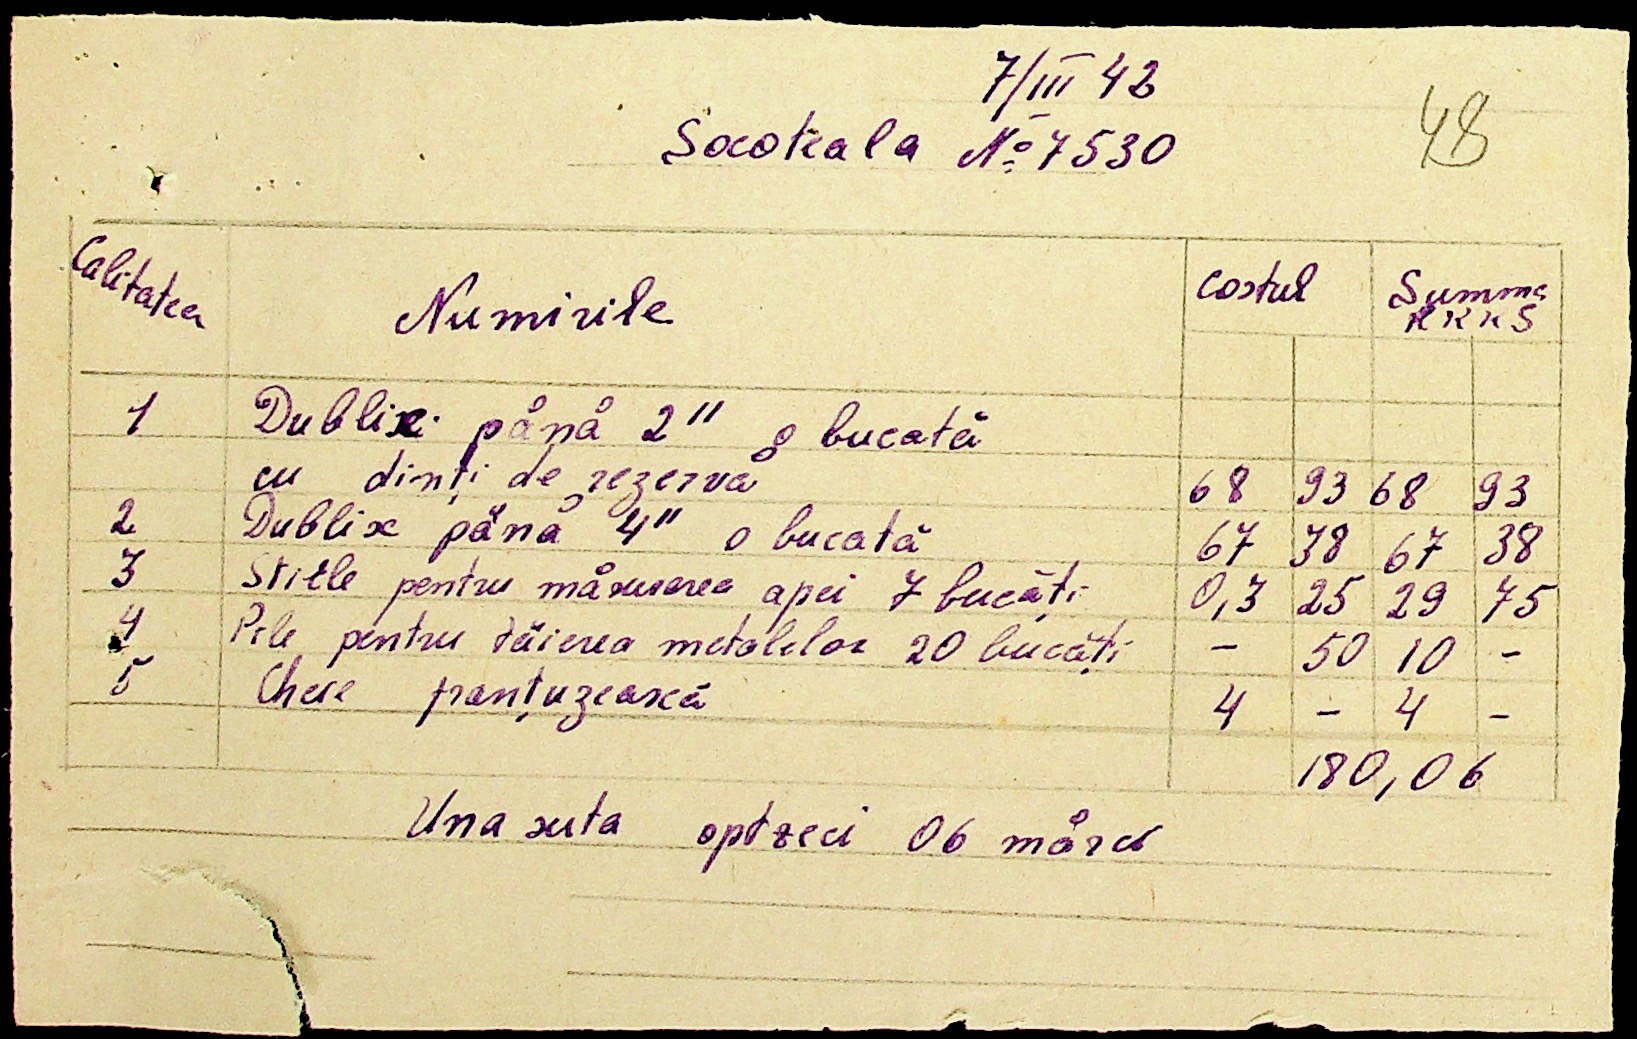 7/III 42
48
Socoteala № 7530
Calitatea Numirile Costul Summa
RKKS
1 Dublix până 2" o bucată
cu dinți de rezervă 68 93 68 93
2 Dublix până 4" o bucată 67 38 67 38
3 Stitle pentru măsurarea apei 7 bucăți 0,3 25 29 75
4 Pile pentru tăierea metalelor 20 bucăți - 50 10 -
5 Cheie franțuzească 4 - 4 -
180,06
Una suta optzeci 06 mărci